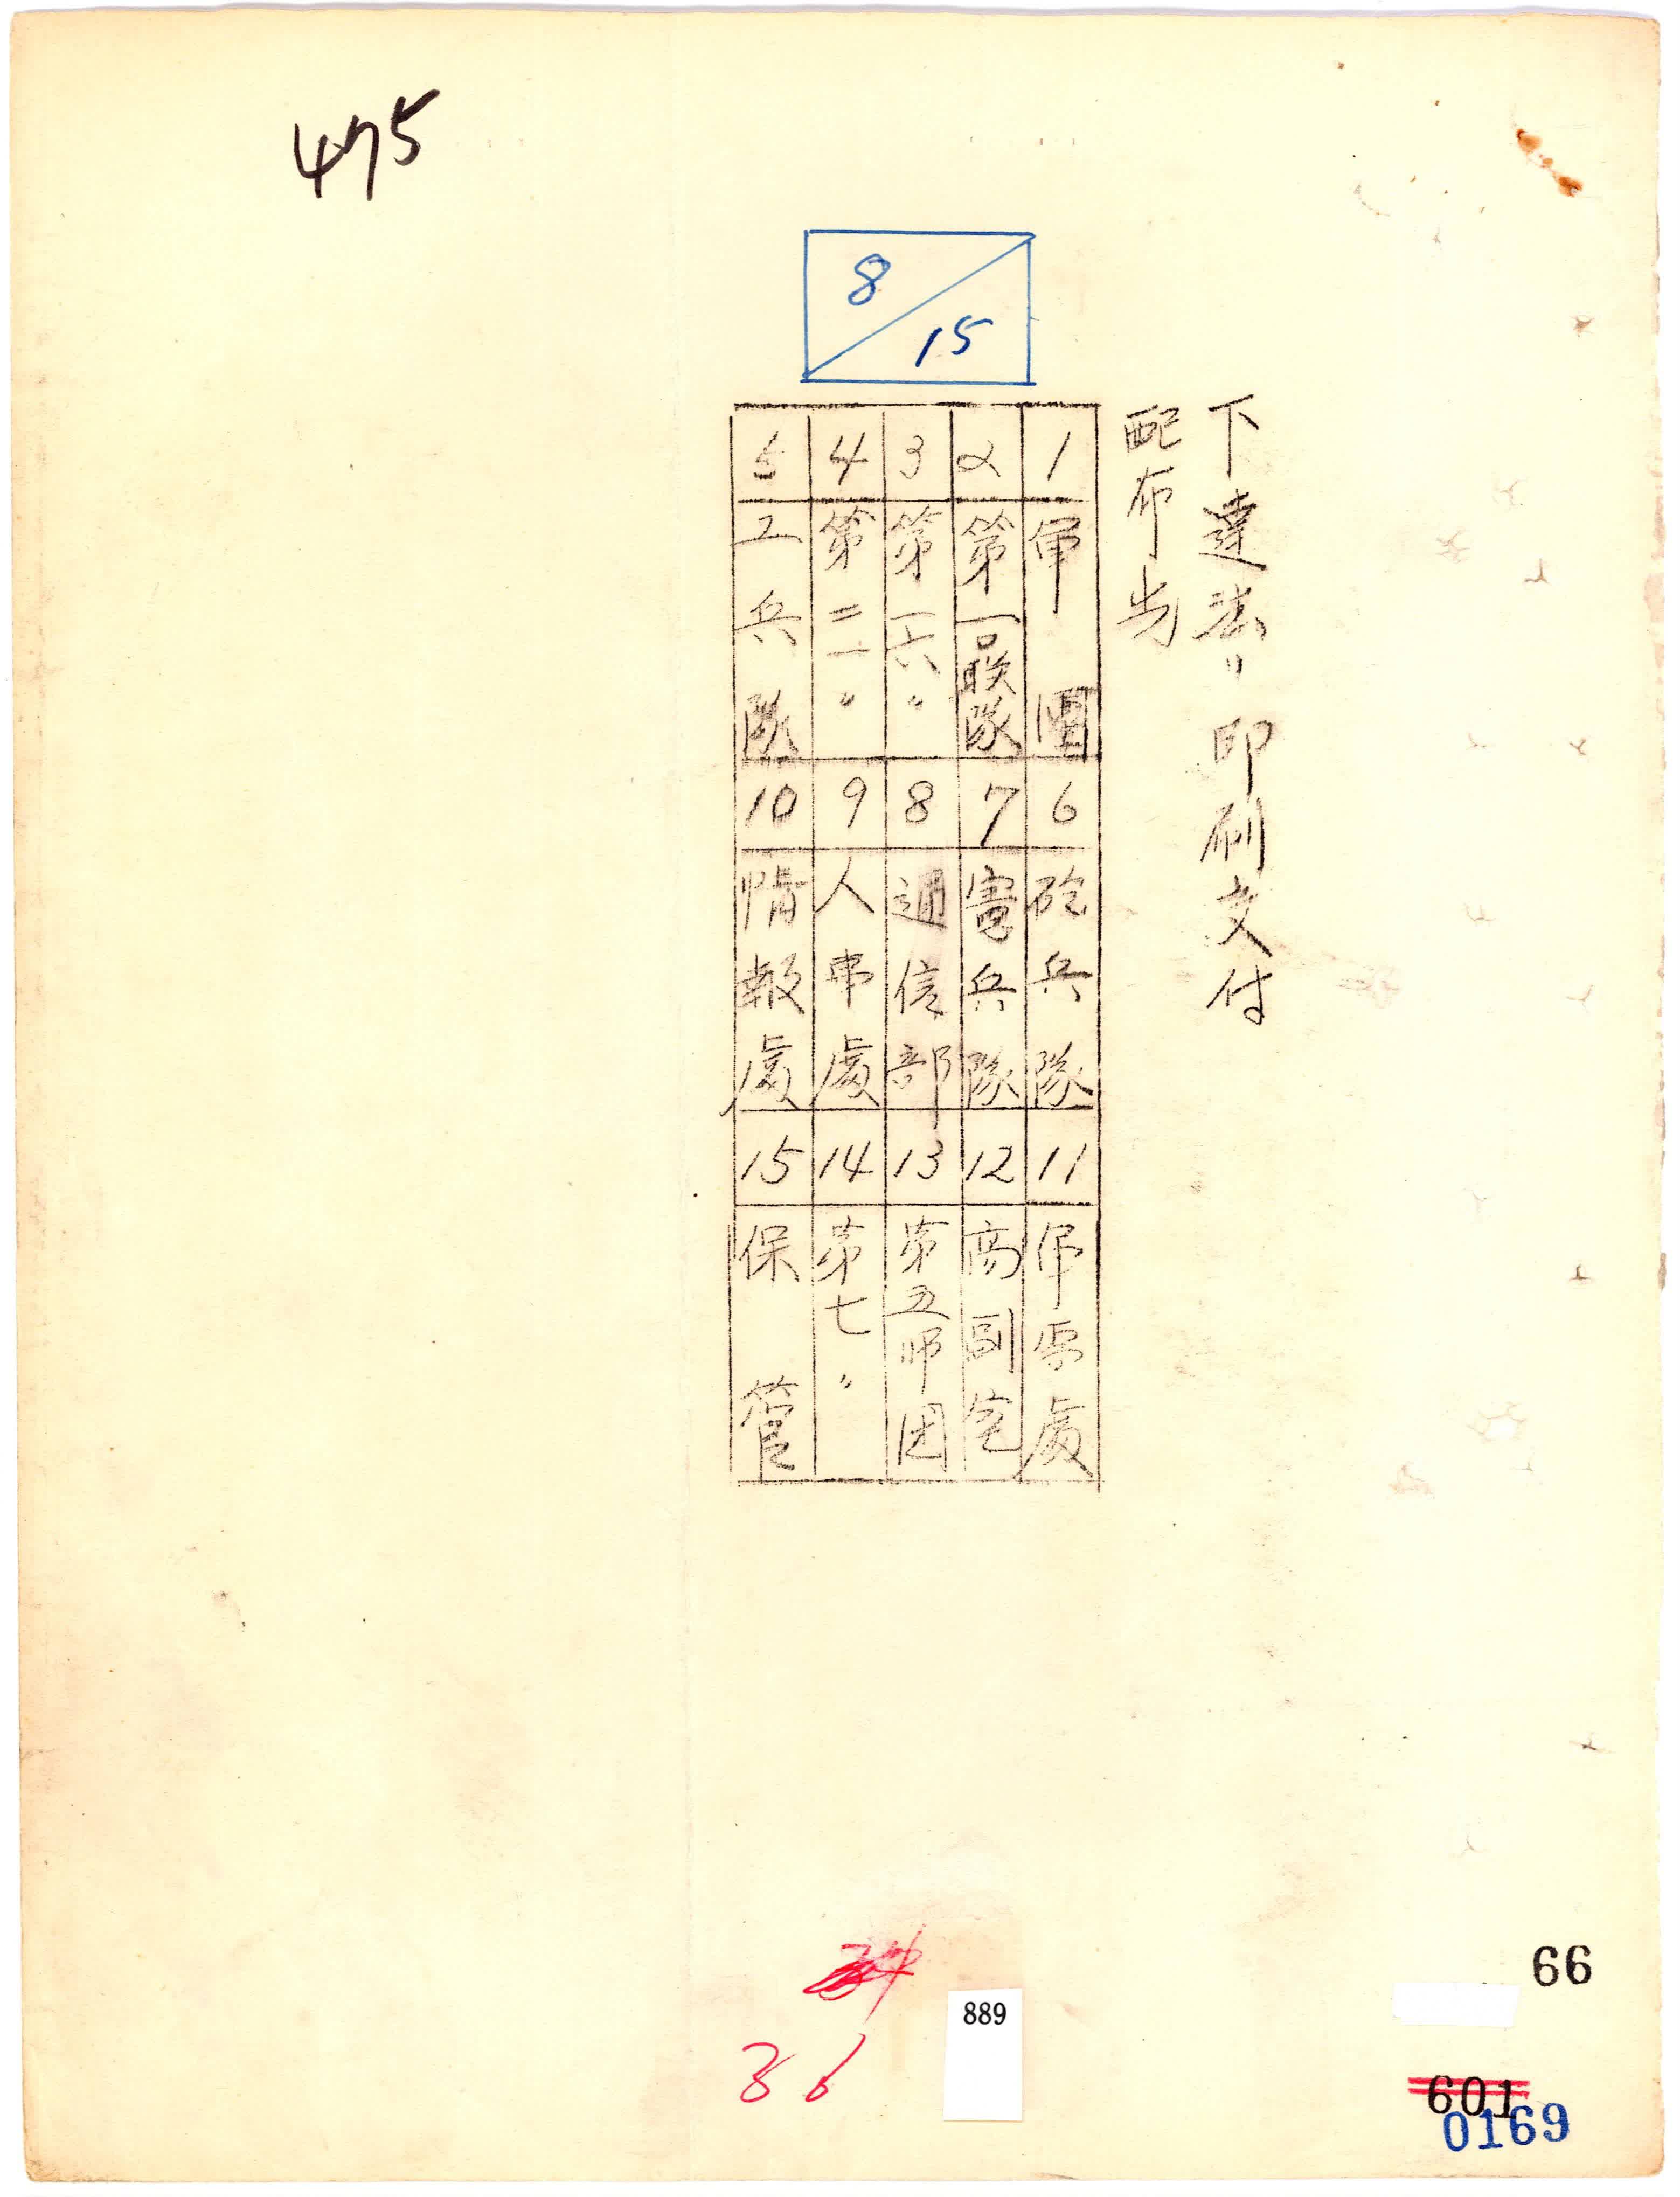 475
8/15
下達法〃印刷交付
配布先
1 軍團
2 第一〇聨隊
3 第一六〃
4 第二一〃
5 工兵隊
6 砲兵隊
7 憲兵隊
8 通信部
9 人事處
10 情報處
11 軍需處
12 高副官
13 第五師团
14 第七〃
15 保管
36
889
66
601
0169